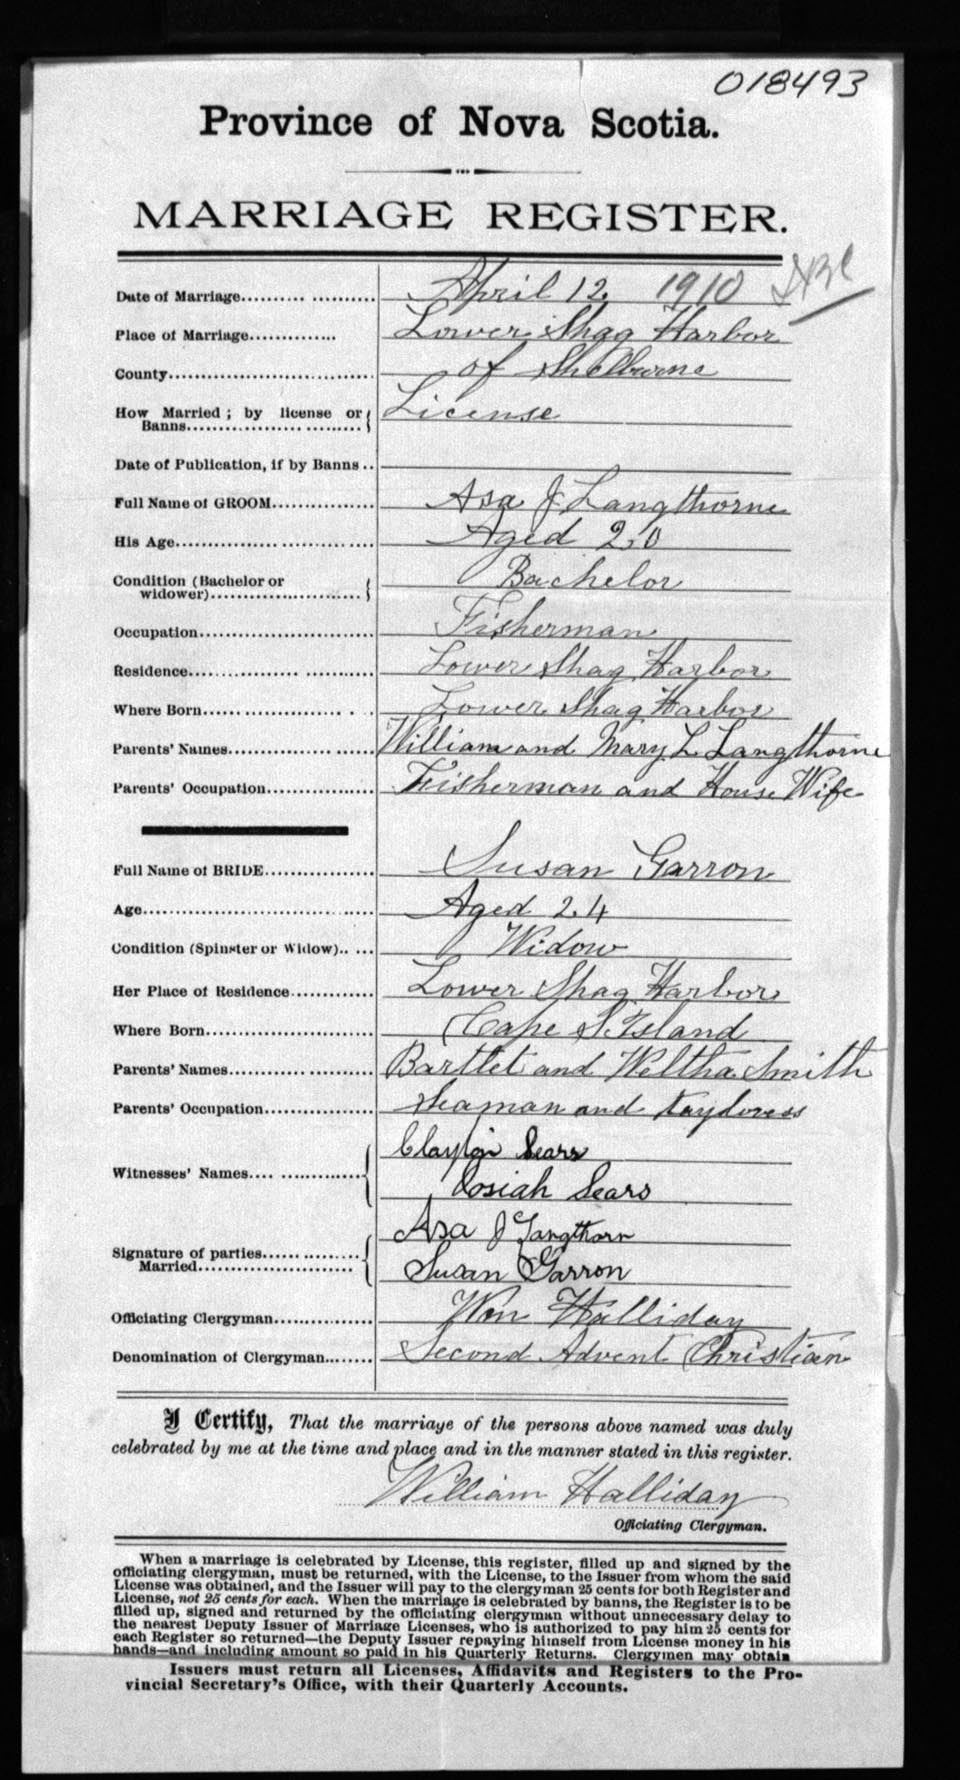 018493
Province of Nova Scotia.
MARRIAGE REGISTER.
Date of Marriage.................... April 12 1910
Place of Marriage.............. Lower Shag Harbor
County.............................. of Shelburne
How Married ; by license or License
Banns..............................
Date of Publication, if by Banns ..
Full Name of GROOM................. Asa J Langthorne
His Age............................. Aged 20
Condition (Bachelor or Bachelor
widower)..........................
Occupation............................. Fisherman
Residence............................. Lower Shag Harbor
Where Born........................ Lower Shag Harbor
Parents' Names........................ William and Mary L Langthorne
Parents' Occupation.................. Fisherman and House Wife
Full Name of BRIDE.................. Susan Garron
Age..................................... Aged 24
Condition (Spinster or Widow).. ... Widow
Her Place of Residence............. Lower Shag Harbor
Where Born.......................... Cape S. Island
Parents' Names........................ Bartlet and Weltha Smith
Parents' Occupation.................. Seaman and
Clayton Sears
Witnesses' Names.....................
Josiah Sears
Asa J Langthorn
Signature of parties..................
Married.......................... Susan Garron
Officiating Clergyman................ Wm Halliday
Denomination of Clergyman........ Second Advent Christian
I Certify, That the marriage of the persons above named was duly
celebrated by me at the time and place and in the manner stated in this register.
William Halliday
Officiating Clergyman.
When a marriage is celebrated by License, this register, filled up and signed by the
officiating clergyman, must be returned, with the License, to the Issuer from whom the said
License was obtained, and the Issuer will pay to the clergyman 25 cents for both Register and
License, not 25 cents for each. When the marriage is celebrated by banns, the Register is to be
filled up, signed and returned by the officiating clergyman without unnecessary delay to
the nearest Deputy Issuer of Marriage Licenses, who is authorized to pay him 25 cents for
each Register so returned—the Deputy Issuer repaying himself from License money in his
hands—and including amount so paid in his Quarterly Returns. Clergymen may obtain
Issuers must return all Licenses, Affidavits and Registers to the Pro-
vincial Secretary's Office, with their Quarterly Accounts.